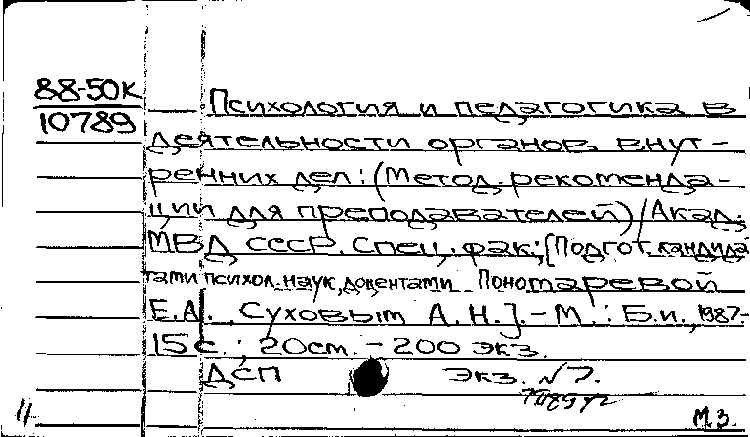 88-50К
10789
Психология и педагогика в
деятельности органов внут-
ренних дел: (Метод. рекоменда-
ции для преподавателей) / Акад.
МВД СССР. Спец. фак.; [Подгот. кандида
тами психол. наук, доцентами Пономаревой
Е.А., Суховым А.Н.]. - М.: Б.и., 1987.-
15 с.; 20 см. - 200 экз.
ДСП Экз. № 7.
11
М.З.